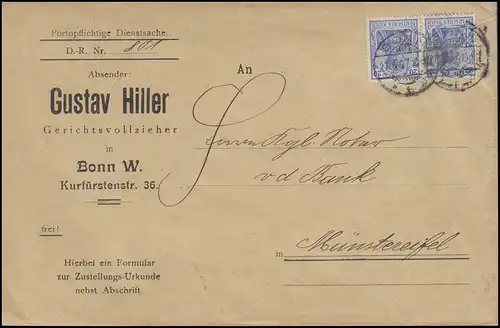 Portopflichtige Dienstsache.
D.-R. Nr. 801
Absender:
Gustav Hiller
Gerichtsvollzieher
in
Bonn W.
Kurfürstenstr. 36.
frei!
Hierbei ein Formular
zur Zustellungs-Urkunde
nebst Abschrift
An
Herrn Kgl. Notar
v d Bank
in Münstereifel
DEUTSCHES REICH
DEUTSCHES REICH